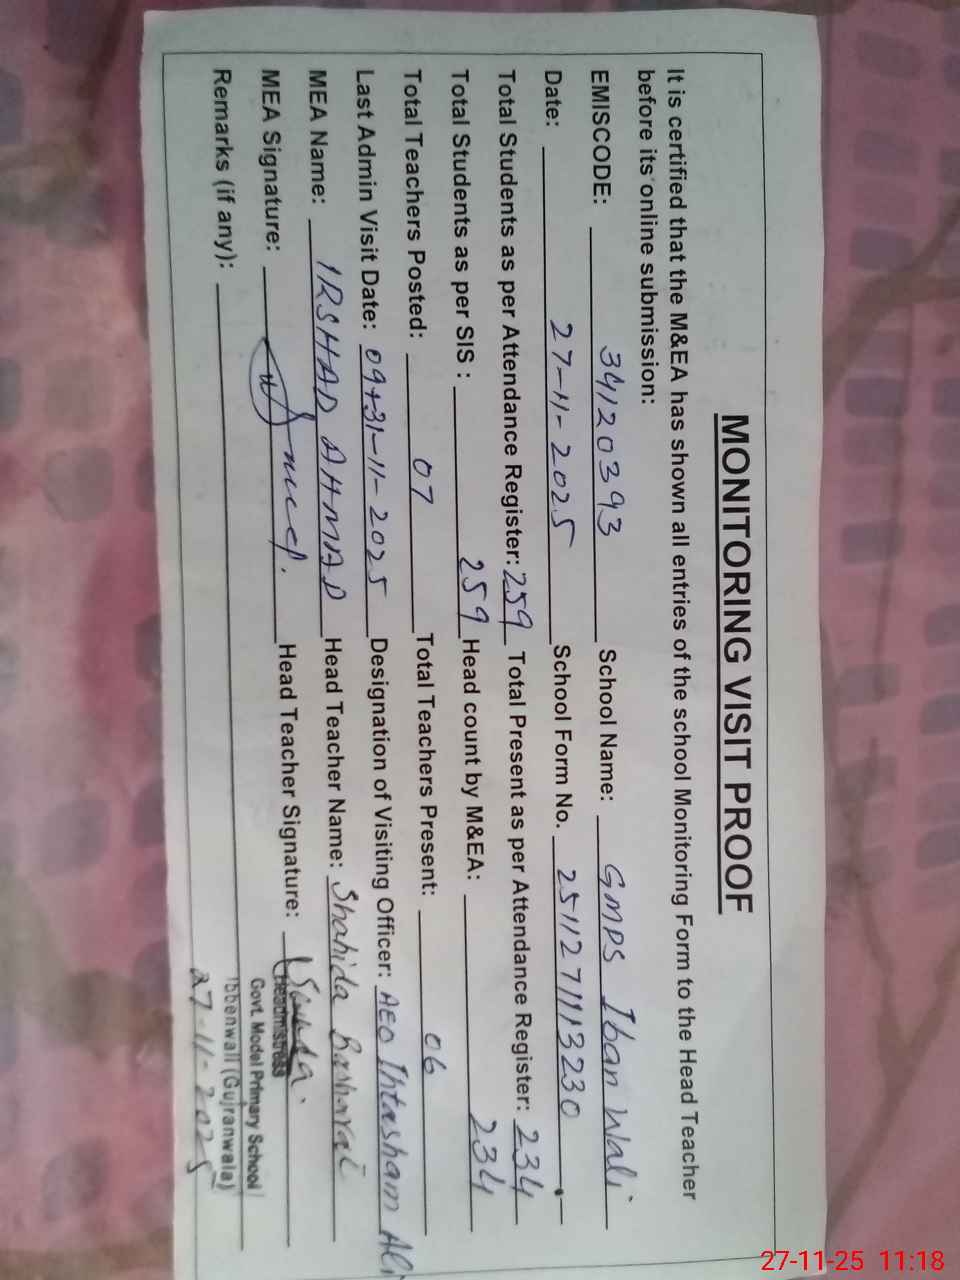 MONITORING VISIT PROOF
It is certified that the M&EA has shown all entries of the school Monitoring Form to the Head Teacher
before its online submission:
EMISCODE: 34120393 School Name: GMPS Iban Wali
Date: 27-11-2025 School Form No. 2511271113230
Total Students as per Attendance Register: 259 Total Present as per Attendance Register: 234
Total Students as per SIS : 259 Head count by M&EA: 234
Total Teachers Posted: 07 Total Teachers Present: 06
Last Admin Visit Date: 09+31-11-2025 Designation of Visiting Officer: AEO Ihtasham Ali
MEA Name: IRSHAD AHMAD Head Teacher Name: Shahida Basharat
MEA Signature: Head Teacher Signature:
Headmistress
Remarks (if any): Govt. Model Primary School
Ibbenwali (Gujranwala)
27-11-2025
27-11-25 11:18